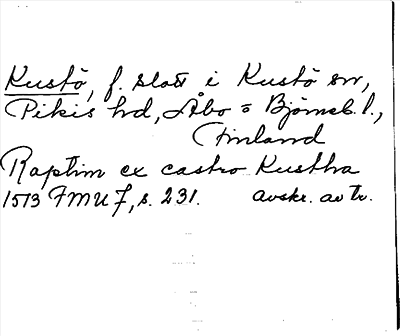 Kustö, f. slott i Kustö sn,
Pikis hd, Åbo = Björneb. l.,
Finland
Raptim ex castro Kustha
1513 FMU 7, s. 231. avskr. av tr.